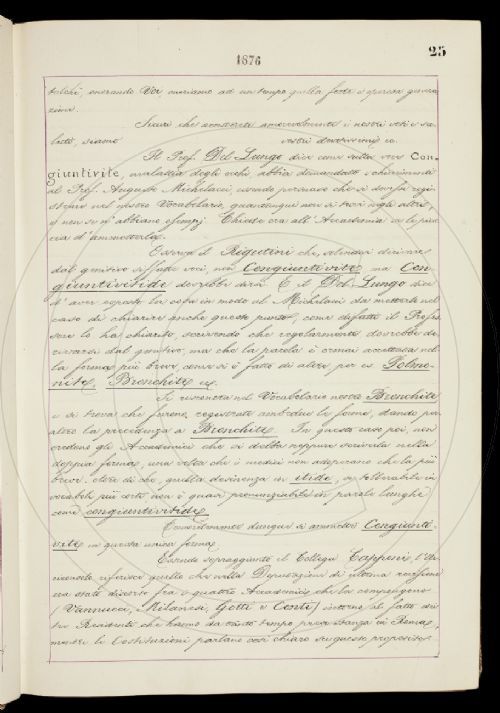 25
1876
talchè, onorando Voi, onoriamo ad un tempo quella forte e operosa genera
zione.
Sicuri che amorevolmente i nostri voti e sa
luti, siamo vostri devotissimi ec.
Il Prof. Del Lungo dice come sulla voce Con-
giuntivite, malattia degli occhi abbia domandato schiarimenti
al Prof. Augusto Michelacci, essendo persuaso che si dovesse regi
strare nel nostro Vocabolario, quantunque non si trovi negli altri,
e non se n'abbiano esempj. Chiede ora all'Accademia se le piac
cia d'ammetterla.
Osserva il Rigutini che, volendosi derivare
dal genitivo siffatte voci, non Congiuntivite ma Con-
giuntivitide dovrebbe dirsi. E il Del Lungo dice
d'aver esposto la cosa in modo al Michelacci da metterlo nel
caso di chiarire anche questo punto, come difatto il Profes
sore lo ha chiarito, scrivendo che regolarmente dovrebbe de
rivarsi dal genitivo, ma che la parola è ormai accettata nel
la forma più breve, come si è fatto di altre per es. Polmo-
nite, Bronchite ec.
Si riscontra nel Vocabolario nostro Bronchite
e si trova che furono registrate ambedue le forme, dando per
altro la precedenza a Bronchite. In questo caso poi, non
credono gli Accademici che si debba neppure scriverla nella
doppia forma, una volta che i medici non adoperano che la più
breve. Oltre di che, quella desinenza in itide, se tollerabile in
vocaboli più corti non è quasi pronunziabile in parole lunghe
come congiuntivitide.
Concordemente dunque si ammette Congiunti-
vite in questa unica forma.
Essendo sopraggiunto il Collega Capponi l'Ar
ciconsolo, riferisce quello che nella Deputazione di interna
era stato discorso fra i quattro Accademici che la compongono
(Vannucci, Milanesi, Gotti e Conti) intorno al fatto dei
tre Residenti che hanno da tanto tempo presa stanza in Roma,
mentre le Costituzioni parlano così chiaro su questo proposito.